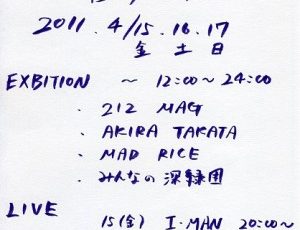 2011. 4/15.16.17
金 土 日
EXBITION ~ 12:00~24:00
・ 212 MAG
・ AKIRA TAKATA
・ MAD RICE
・ みんなの深緑団
LIVE
15(金) I-MAN 20:00~